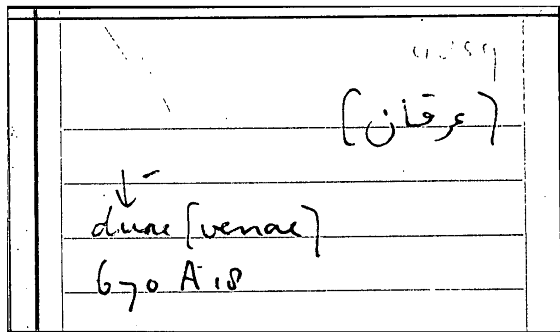 (عرقان)
duae (venae)
670 A 18